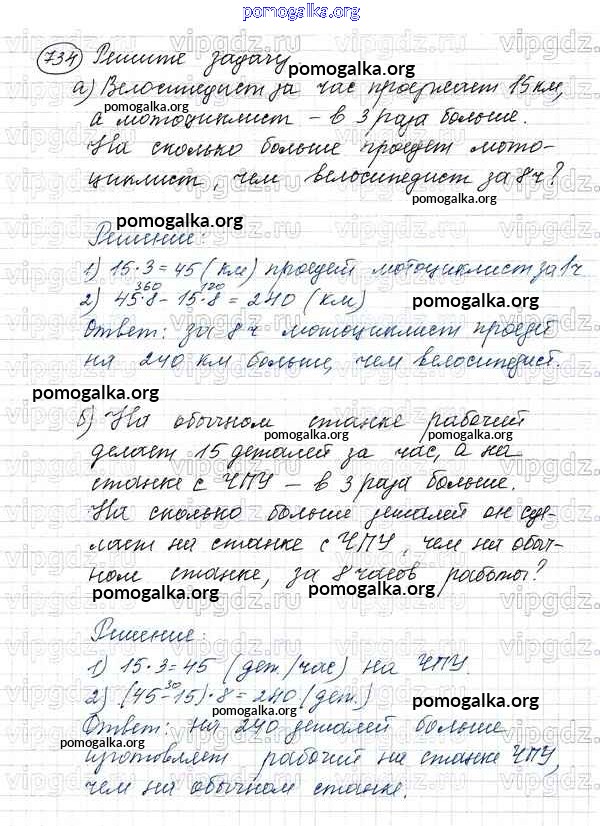 pomogalka.org
734 Решите задачу
pomogalka.org
а) Велосипедист за час проезжает 15 км,
pomogalka.org
а мотоциклист – в 3 раза больше.
pomogalka.org
На сколько больше проедет мото-
циклист, чем велосипедист за 8 ч?
pomogalka.org
pomogalka.org
Решение:
1) 15·3=45 (км) проедет мотоциклист за 1 ч
360 120
2) 45·8 – 15·8 = 240 (км)
pomogalka.org
Ответ: за 8 ч мотоциклист проедет
на 240 км больше, чем велосипедист.
pomogalka.org
б) На обычном станке рабочий
pomogalka.org
pomogalka.org
делает 15 деталей за час, а на
станке с ЧПУ – в 3 раза больше.
pomogalka.org
На сколько больше деталей он сде-
лает на станке с ЧПУ, чем на обыч-
ном станке, за 8 часов работы?
pomogalka.org
pomogalka.org
Решение:
1) 15·3=45 (дет./час) на ЧПУ.
30
2) (45–15)·8=240 (дет.)
pomogalka.org
Ответ: на 240 деталей больше
pomogalka.org
изготовляет рабочий на станке ЧПУ,
pomogalka.org
чем на обычном станке.
vipgdz.ru